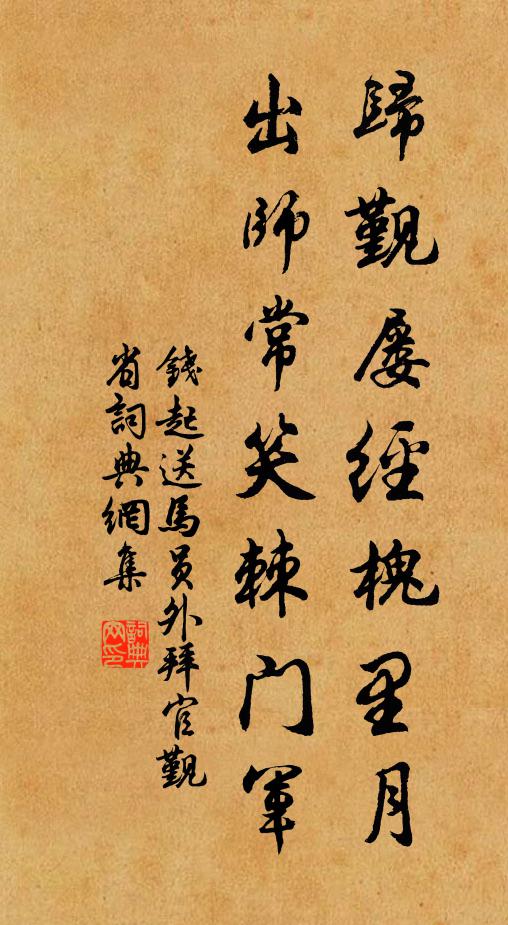 歸觐屡經槐里月
出師常笑棘門軍
錢起送馬員外拜官觐
省詞典網集
詞典網印